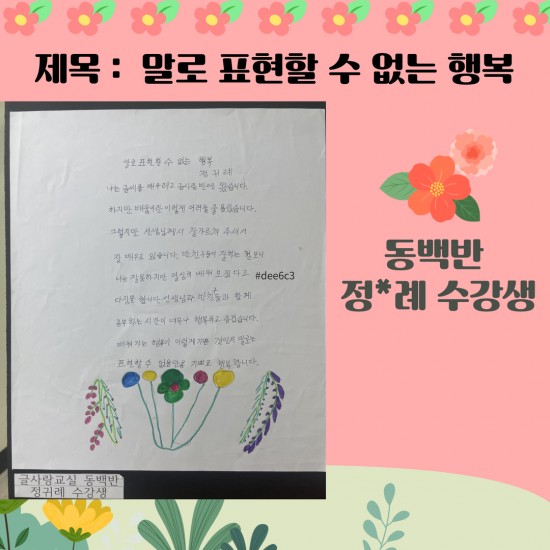 제목 : 말로 표현할 수 없는 행복
말로 표현할 수 없는 행복
정귀례
나는 글씨를 배우려고 글사랑반에 왔습니다.
하지만 배움이란 이렇게 어려울 줄 몰랐습니다.
그렇지만 선생님께서 잘 가르쳐 주셔서
잘 배우고 있습니다. 반 친구들이 잘하는 걸 보니
나는 잘 못하지만 열심히 배워 보겠다고
#dee6c3
다짐을 합니다 선생님과 친구들과 함께
공부하는 시간이 너무나 행복하고 즐겁습니다.
배워가는 행복이 이렇게 기쁜 것인지 말로는
표현할 수 없을 만큼 기쁘고 행복합니다.
동백반
정*례 수강생
글사랑교실 동백반
정귀례 수강생